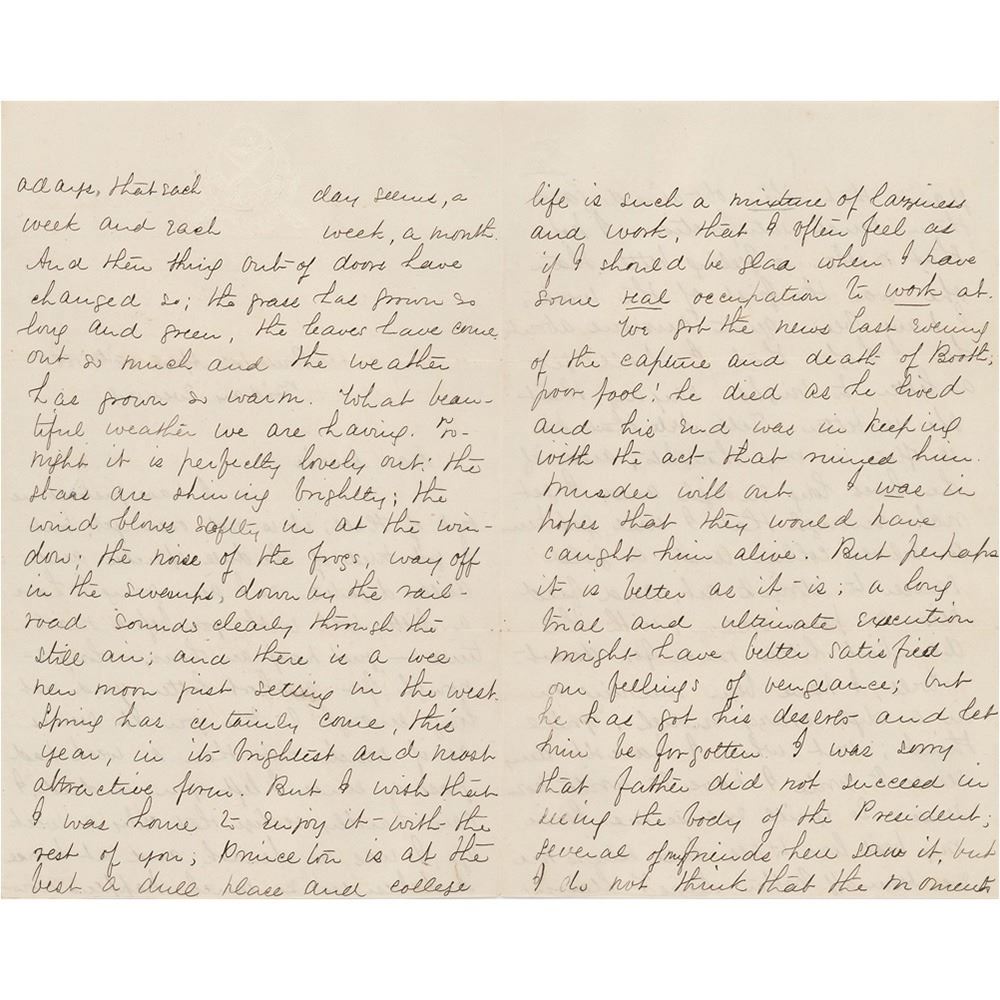 adays, that each day seems, a
week and each week, a month.
And then thing out of doors have
changed so; the grass has grown so
long and green, the leaves have come
out so much and the weather
has grown so warm. What beau-
tiful weather we are having. To-
night it is perfectly lovely out: the
stars are shining brightly; the
wind blows softly in at the win-
dow; the noise of the frogs, way off
in the swamps, down by the rail-
road sounds clearly through the
still air; and there is a wee
new moon just setting in the west.
Spring has certainly come, this
year, in its brightest and most
attractive form. But I wish that
I was home to enjoy it with the
rest of you; Princeton is at the
best a dull place and college
life is such a mixture of laziness
and work, that I often feel as
if I should be glad when I have
some real occupation to work at.
We got the news last evening
of the capture and death of Booth;
poor fool! he died as he lived
and his end was in keeping
with the act that ruined him.
Murder will out I was in
hopes that they would have
caught him alive. But perhaps
it is better as it is; a long
trial and ultimate execution
might have better satisfied
our feelings of vengeance; but
he has got his deserts and let
him be forgotten. I was sorry
that father did not succeed in
seeing the body of the President;
several of my friends here saw it, but
I do not think that the moments